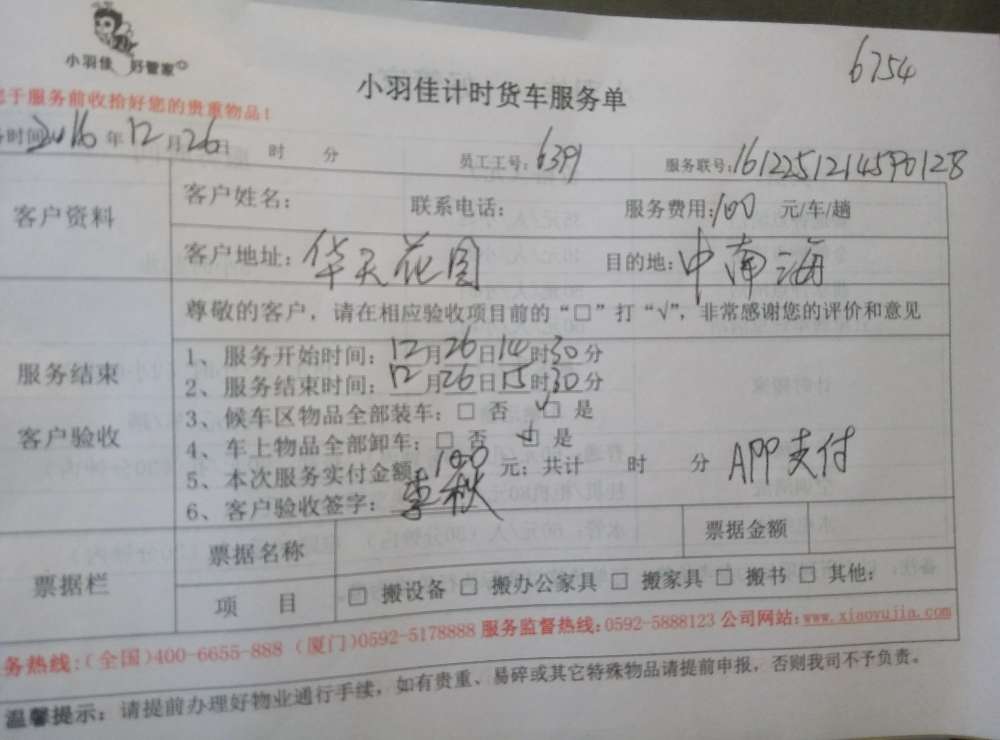 小羽佳 好管家
6754
小羽佳计时货车服务单
于服务前收拾好您的贵重物品!
时间 2016 年 12 月 26 日 时 分 员工工号: 6391 服务联号: 161225121459012B
客户资料
客户姓名: 联系电话: 服务费用: 100 元/车/趟
客户地址: 华天花园 目的地: 中南海
尊敬的客户,请在相应验收项目前的“□”打“√”,非常感谢您的评价和意见
服务结束
客户验收
1、服务开始时间: 12月26日14时30分
2、服务结束时间: 12月26日15时30分
3、候车区物品全部装车: □ 否 ☑ 是
4、车上物品全部卸车: □ 否 ☑ 是
5、本次服务实付金额: 100 元; 共计 时 分 APP支付
6、客户验收签字: 李秋
票据栏
票据名称 票据金额
项 目 □ 搬设备 □ 搬办公家具 □ 搬家具 □ 搬书 □ 其他:
务热线:(全国)400-6655-888 (厦门)0592-5178888 服务监督热线:0592-5888123 公司网站:www.xiaoyujia.com
温馨提示: 请提前办理好物业通行手续,如有贵重、易碎或其它特殊物品请提前申报,否则我司不予负责。